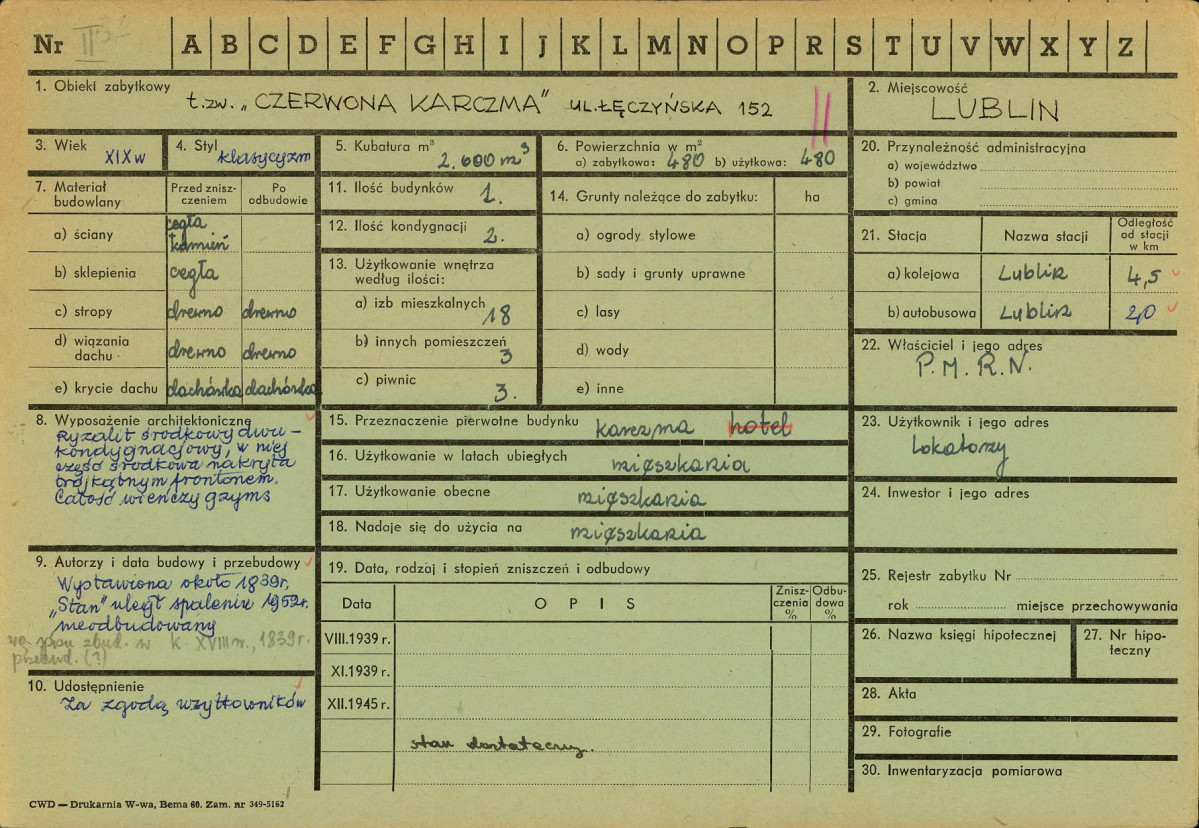 Nr II
A B C D E F G H I J K L M N O P R S T U V W X Y Z
1. Obiekt zabytkowy
t.zw. „CZERWONA KARCZMA" UL.ŁĘCZYŃSKA 152
2. Miejscowość
LUBLIN
3. Wiek
XIX w
4. Styl
klasycyzm
5. Kubatura m³
2.600 m³
6. Powierzchnia w m²
a) zabytkowa: 480 b) użytkowa: 480
7. Materiał budowlany
Przed zniszczeniem
Po odbudowie
a) ściany
cegła
kamień
b) sklepienia cegła
c) stropy drewno drewno
d) wiązania dachu drewno drewno
e) krycie dachu dachówka dachówka
8. Wyposażenie architektoniczne
Ryzalit środkowy dwu-
kondygnacjowy, w niej
część środkowa nakryta
trójkątnym frontonem.
Całość wieńczy gzyms
9. Autorzy i data budowy i przebudowy
Wystawiona około 1839r.
„Stan" uległ spaleniu 1952r.
nieodbudowany
zbud. w k. XVIII w., 1839 r.
przebud. (?)
10. Udostępnienie
Za zgodą użytkowników
11. Ilość budynków 1.
12. Ilość kondygnacji 2.
13. Użytkowanie wnętrza
według ilości:
a) izb mieszkalnych 18
b) innych pomieszczeń 3
c) piwnic 3.
14. Grunty należące do zabytku: ha
a) ogrody stylowe
b) sady i grunty uprawne
c) lasy
d) wody
e) inne
15. Przeznaczenie pierwotne budynku karczma hotel
16. Użytkowanie w latach ubiegłych mieszkania
17. Użytkowanie obecne mieszkania
18. Nadaje się do użycia na mieszkania
19. Data, rodzaj i stopień zniszczeń i odbudowy
Data
OPIS
Zniszczenia %
Odbudowa %
VIII.1939 r.
XI.1939 r.
XII.1945 r.
stan dostateczny.
20. Przynależność administracyjna
a) województwo
b) powiat
c) gmina
21. Stacja
Nazwa stacji
Odległość od stacji w km
a) kolejowa Lublin 4,5
b) autobusowa Lublin 2,0
22. Właściciel i jego adres
P.M.R.N.
23. Użytkownik i jego adres
Lokatorzy
24. Inwestor i jego adres
25. Rejestr zabytku Nr
rok miejsce przechowywania
26. Nazwa księgi hipotecznej
27. Nr hipoteczny
28. Akta
29. Fotografie
30. Inwentaryzacja pomiarowa
CWD — Drukarnia W-wa, Bema 60. Zam. nr 349-5162